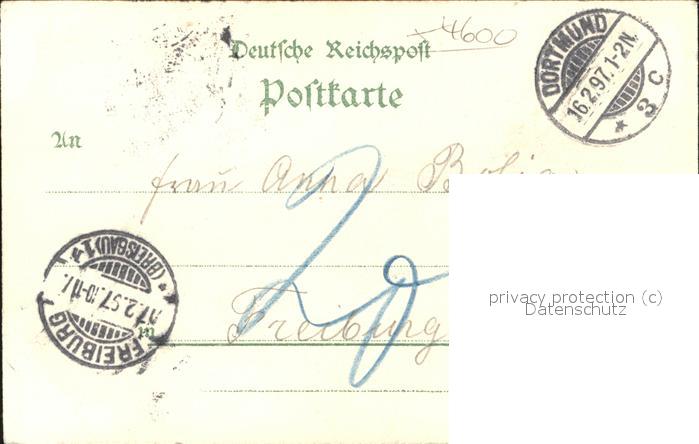 4600
Deutsche Reichspost
Postkarte
DORTMUND
16.2.97.1-2N.
* 3 C
An
Frau Anna
privacy protection (c)
Datenschutz
FREIBURG
17.2.97.10-11V.
(BREISGAU) 1
in
Freiburg
20